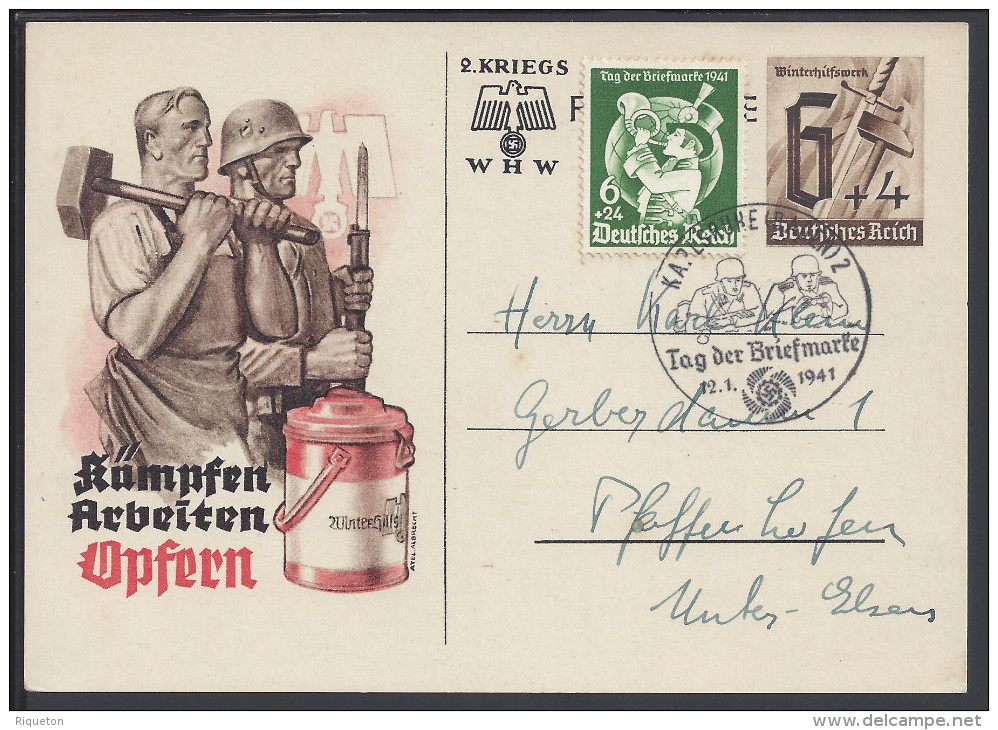 2. KRIEGS
WHW
Tag der Briefmarke 1941
6
+24
Deutsches Reich
Winterhilfswerk
6+4
Deutsches Reich
KARLSRUHE (BADEN) 2
Tag der Briefmarke
12.1. 1941
Herrn Karl Klein
1
Pfaffenhofen
Unter-Elsass
Kämpfen
Arbeiten
Opfern
Winterhilfs
ATEL. ALBRECHT
Riqueton
delcampe.net